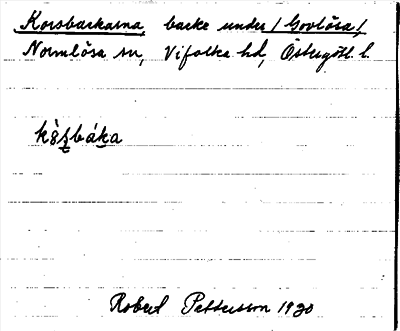 Korsbackarna, backe under / Govlösa /,
Normlösa sn, Vifolka hd, Östergötl. l.
kö̀ʂbáka
Robert Pettersson 1930